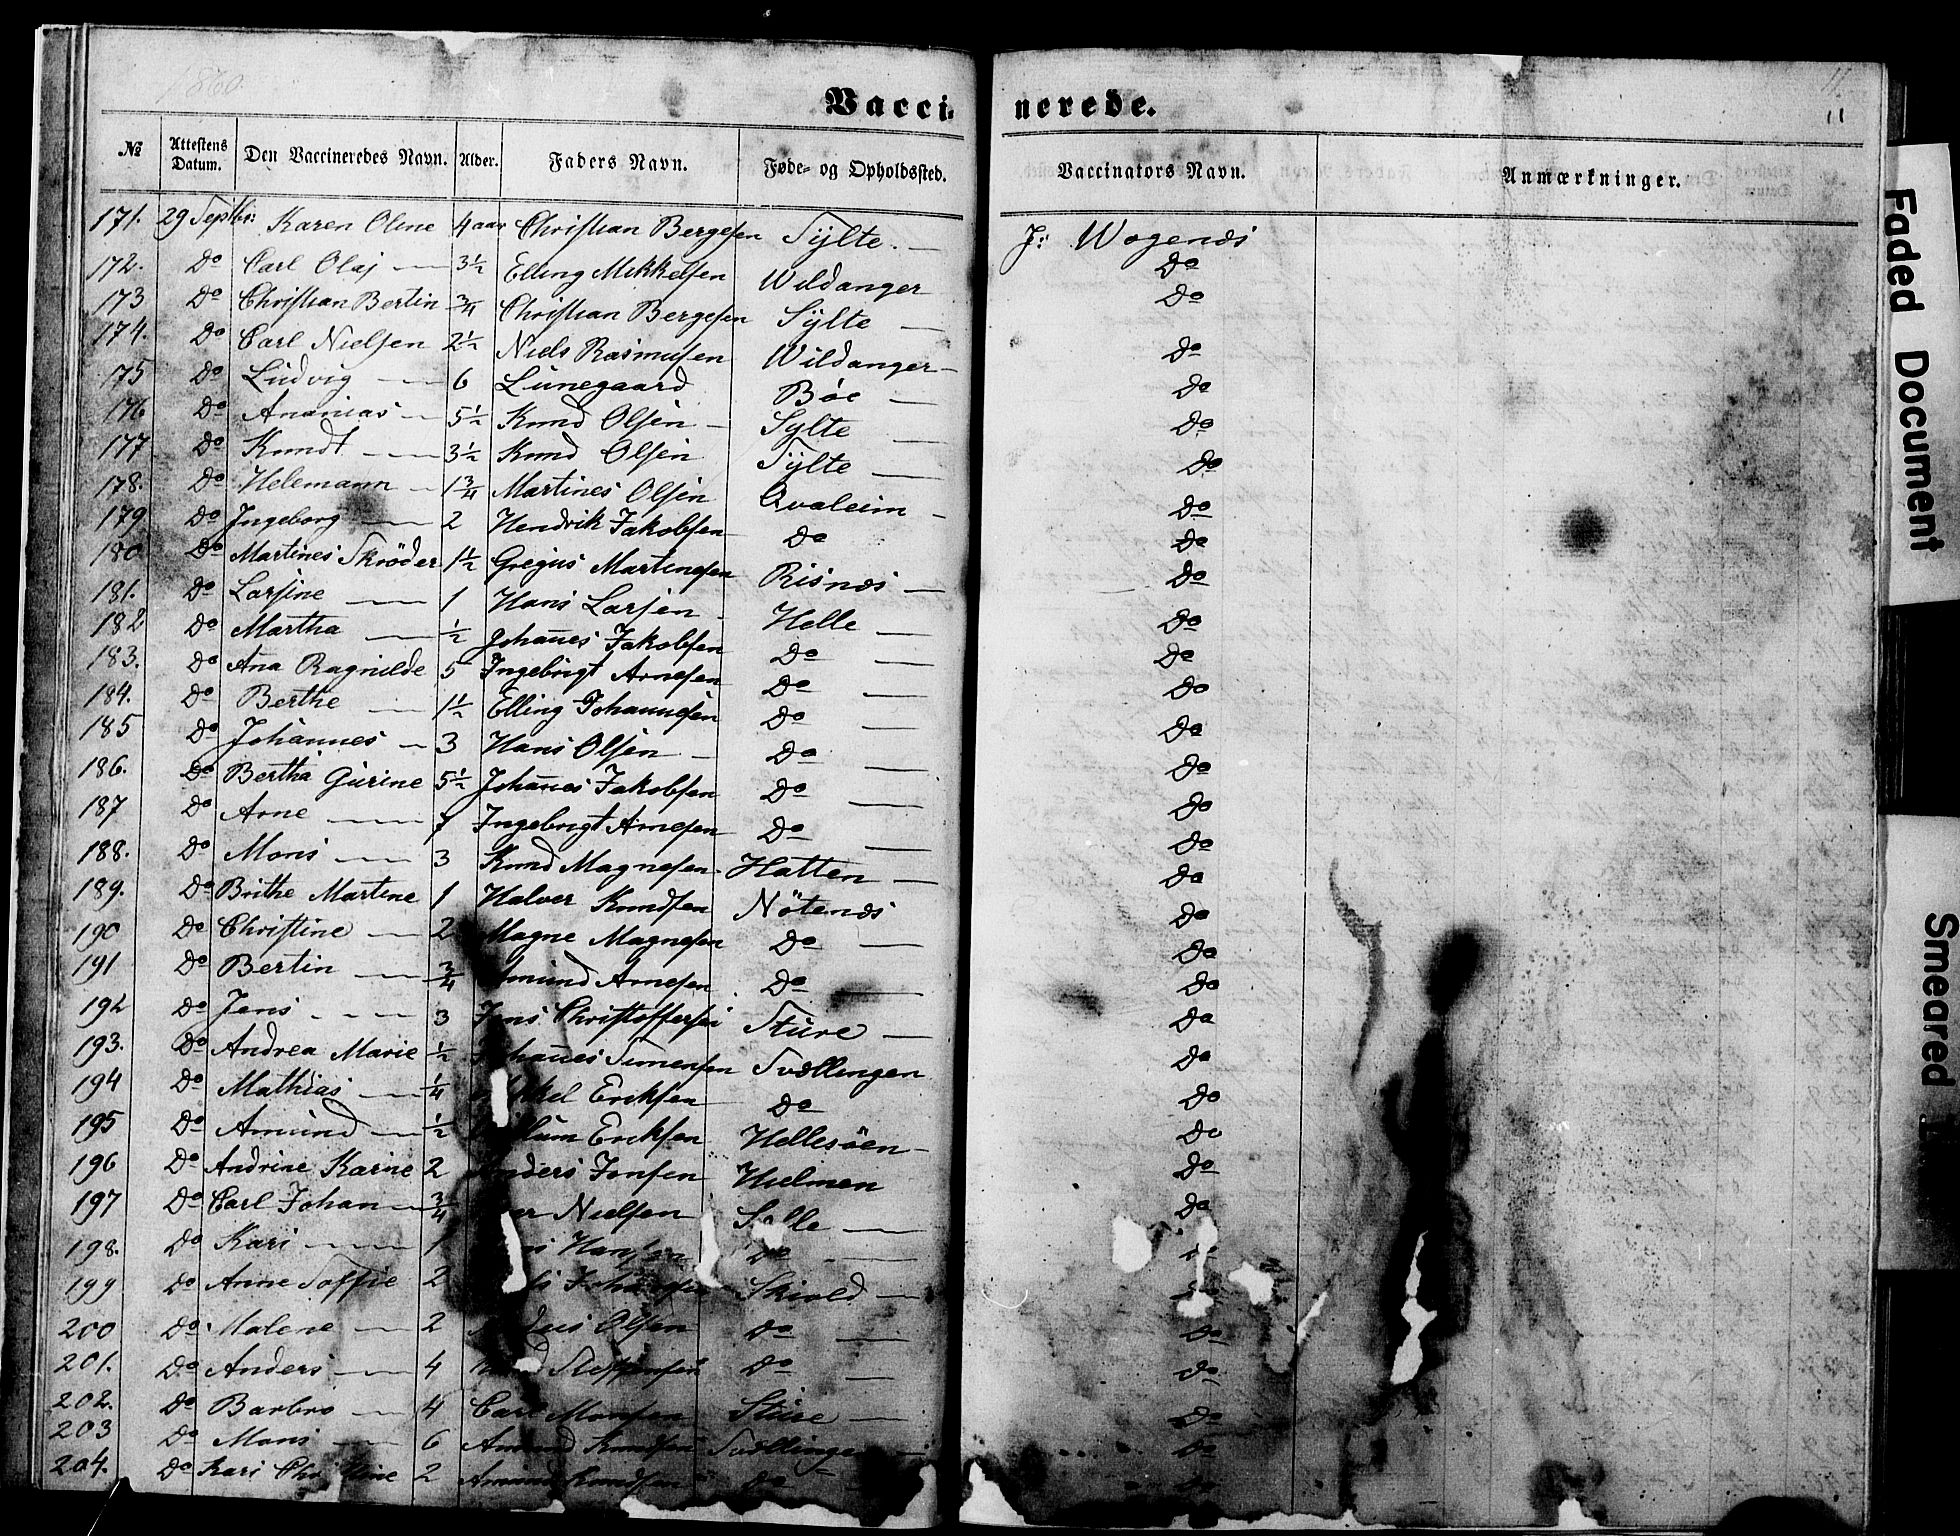 1860.
Vacci- nerede.
11.
11
№ Attestens Datum. Den Vaccineredes Navn. Alder. Faders Navn. Føde- og Opholdssted. Vaccinators Navn. Anmærkninger.
171. 29 Septbr: Karen Oline 4 aar Christian Bergesen Sylte. — J: Wogenæs
172. Do Carl Olaj — 3½ Elling Mikkelsen Wildanger Do
173 Do Christian Bertin ¾ Christian Bergesen Sylte — Do
174. Do Carl Nielsen 2½ Niels Rasmusen Wildanger — Do
175 Do Ludvig — 6 Lunegaard Böe — Do
176 Do Ananias — 5½ Knud Olsen — Sylte — Do
177 Do Knudt — 3½ Knud Olsen Sylte — Do
178. Do Helemann — 1¾ Martines Olsen Qvaleim — Do
179 Do Ingeborg — 2 Hendrik Jakobsen Do Do
180 Do Martines Skröder 1½ Gregus Martinesen Risnæs — Do
181. Do Larsine — 1 Hans Larsen Helle — Do
182 Do Martha — ½ Johanes Jakobsen Do — Do
183. Do Ana Ragnilde 5 Ingebrigt Arnesen Do — Do
184. Do Berthe — 1½ Elling Johannesen Do — Do
185 Do Johannes — 3 Hans Olsen — Do — Do
186. Do Bertha Gurine 5½ Johanes Jakobsen Do — Do
187 Do Arne — 7 Ingebrigt Arnesen Do — Do
188. Do Mons — 3 Knud Magnesen Hatten — Do
189. Do Brithe Martine 1 Halver Knudsen Nötenæs Do
190 Do Christine — 2 Magne Magnesen Do — Do
191 Do Bertin — ¾ Amund Arnesen Do — Do
192 Do Jens — 3 Jens Christoffersen Sture — Do
193. Do Andrea Marie ½ Johanes Simensen Svællingen Do
194 Do Mathias — ¼ Mikkel Eriksen Do Do
195 Do Amund — ½ Eriksen Hellesöen — Do
196 Do Andrine Karine 2 Anders Jensen Hielmen Do
197 Do Carl Johan — ¾ Nielsen — Do
198. Do Kari — 1 Hansen Do — Do
199 Do Anne Soffie 2 Skiold —
200 Do Malene — 2 Olsen Do — Do
201. Do Anders — 4 Steffensen Do — Do
202. Do Barbro — 4 Carl Monsen Sture — Do
203 Do Mons — 6 Amund Knudsen Svællingen — Do
204. Do Kari Christine 2 Amund Knudsen Do Do
Faded Document
Smeared